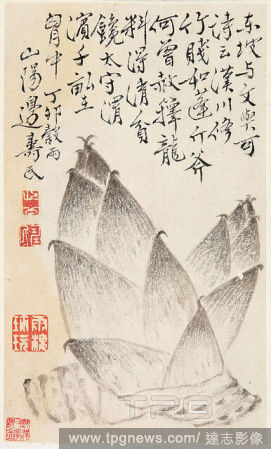 东坡与文與可
詩云漢川脩
竹賤如蓬斤斧
何曾赦籜龍
料得清貧
饞太守渭
濱千畝在
胷中 丁卯穀雨
山陽邊壽民
TPG
www.tpgnews.com / 達志影像